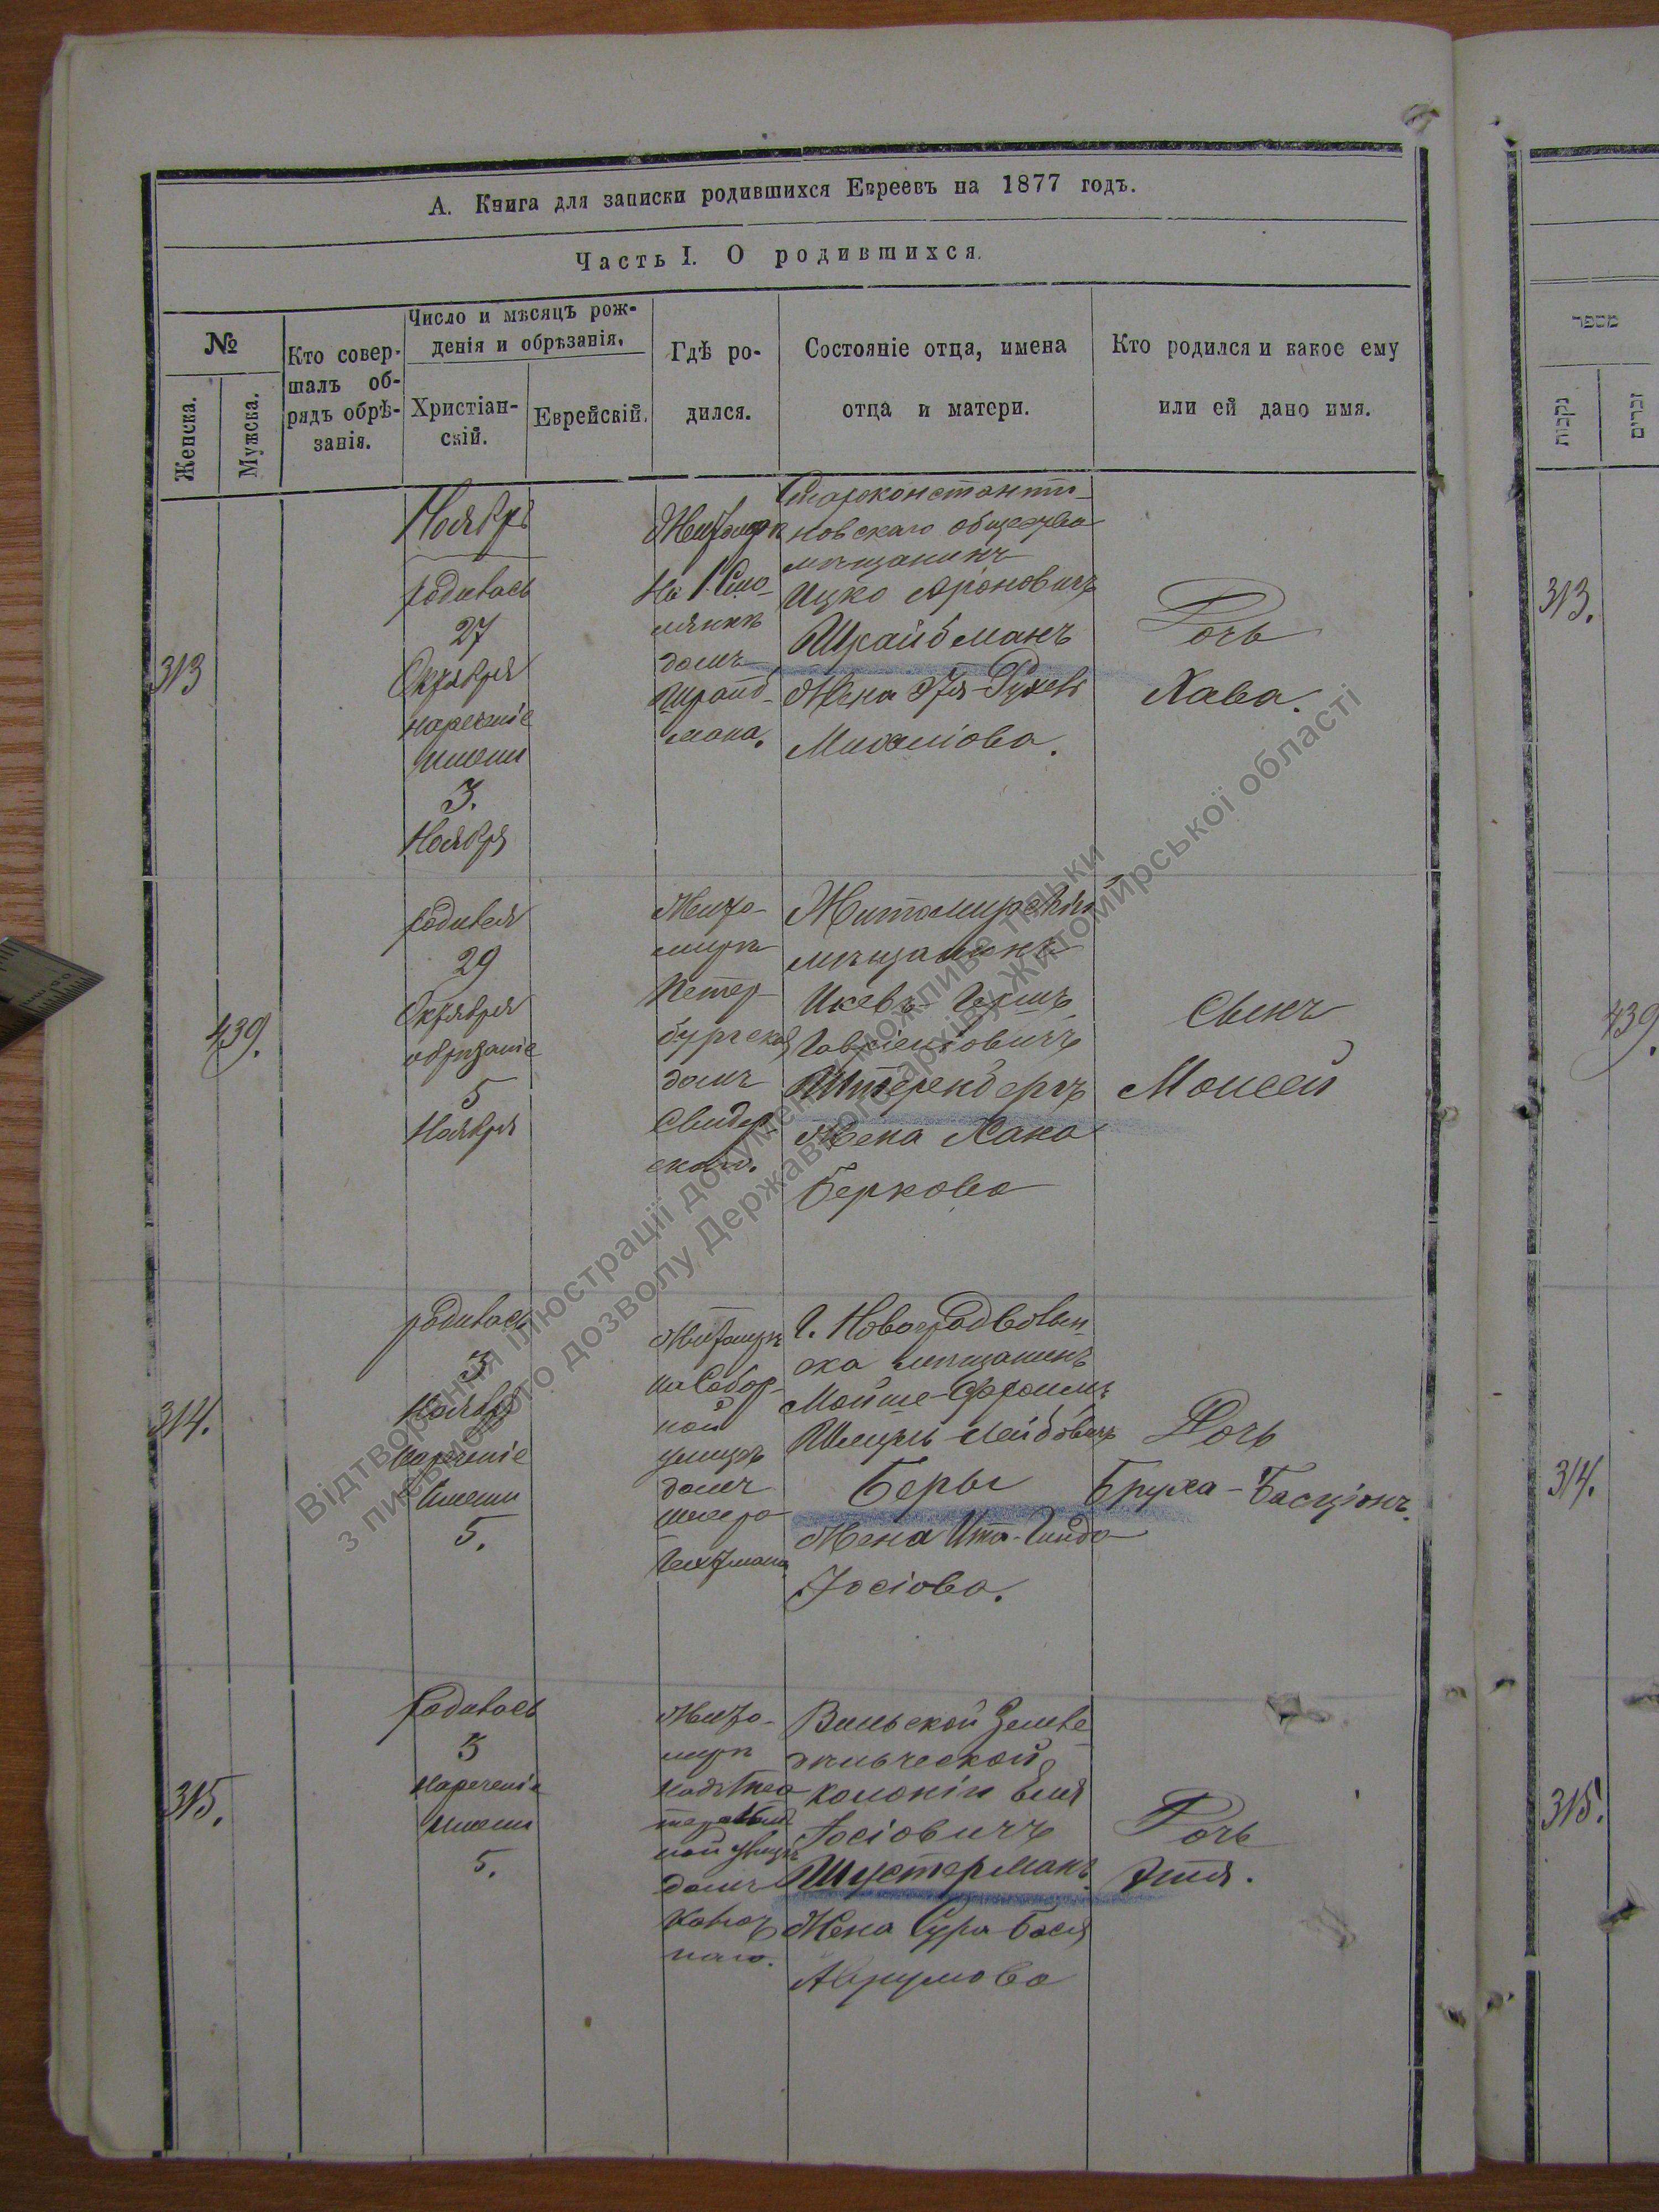 А. Книга для записки родившихся Евреевъ на 1877 годъ.
Часть I. О родившихся.
№
Женска.
Мужска.
Кто совер-
шалъ об-
рядъ обрѣ-
занія.
Число и мѣсяцъ рож-
денія и обрѣзанія.
Христіан-
скій.
Еврейскій.
Гдѣ ро-
дился.
Состояніе отца, имена
отца и матери.
Кто родился и какое ему
или ей дано имя.
313
Ноябрь
родилась
27
Октября
нареченіе
имени
3.
Ноября
домъ
Шрайб-
мана.
Староконстанти-
новскаго общества
мѣщанинъ
Ицко Ароновичъ
Шрайбманъ
Жена Этя-Рухель
Дочь
Хава.
439.
родился
29
Октября
обрѣзаніе
5
Ноября
Жито-
миръ
Петер-
бургская
домъ
Свидер-
скаго.
Житомирскій
мѣщанинъ
Штеренберъ
Жена Хана
Беркова
Сынъ
Моисей
314.
родилась
3
Ноября
нареченіе
имени
5.
на Собор-
ной
улицѣ
домъ
г. Новоградволын-
ска мѣщанинъ
Мойше-Эфроимъ
Шмуль Лейбовичъ
Беры
Жена Ита-Гинда
Іосіова.
Дочь
Бруха-Басціонъ.
315.
родилась
3
нареченіе
имени
5.
Жито-
миръ
ной улицѣ
домъ
Вильской Землед-
ѣльческой
колоніи Еля
Іосіовичъ
Шустерманъ
Жена Сура Бася
Аврумова
Дочь
Этя.
מספר
נקבות
זכרים
313.
439.
314.
315.
Відтворення ілюстрації документу можливе тільки
з письмового дозволу Державного архіву Житомирської області